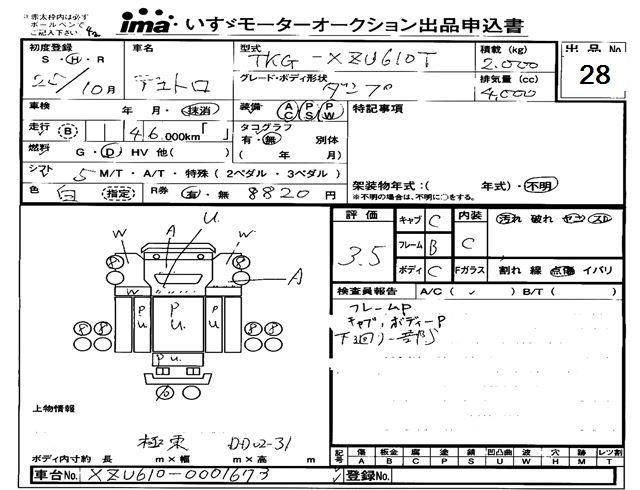 ※赤太枠内は必ず
ボールペンで
ご記入下さい
ima いすゞモーターオークション出品申込書
初度登録 車名 型式 積載 (kg) 出品No
S・H・R デュトロ TKG-XZU610T 2,000 28
25/10月 グレード・ボディ形状 ダンプ 排気量 (cc) 4,000
車検 年 月・抹消 装備 AC PS PW 特記事項
走行 B 146,000km「 」 タコグラフ 有・無 別体
燃料 G・D HV 他( ) ( 年 月)
シフト 5 M/T・A/T・特殊 (2ペダル・3ペダル) 架装物年式:( 年式)・不明
色 白 指定 R券 有・無 8820円 ※不明の場合は、不明に○をする。
評価 キャブ C 内装 汚れ 破れ ヤケ スレ
3.5 フレーム B C
ボディ C Fガラス 割れ 線 点傷 イバリ
検査員報告 A/C( ) B/T( )
フレームP
キャブ、ボディーP
下回り一部S
U
W A W
8 8
A
W
P P P
U. U. U.
8 8 8 8
P U.
上物情報
極東 DD02-31
ボディ内寸約 長 m×幅 m×高 m
記号 傷 板金 腐 塗 錆 凹凸曲 波 穴 跡 レツ割
A B C P S U W H M T
車台No. XZU610-0001673 登録No.